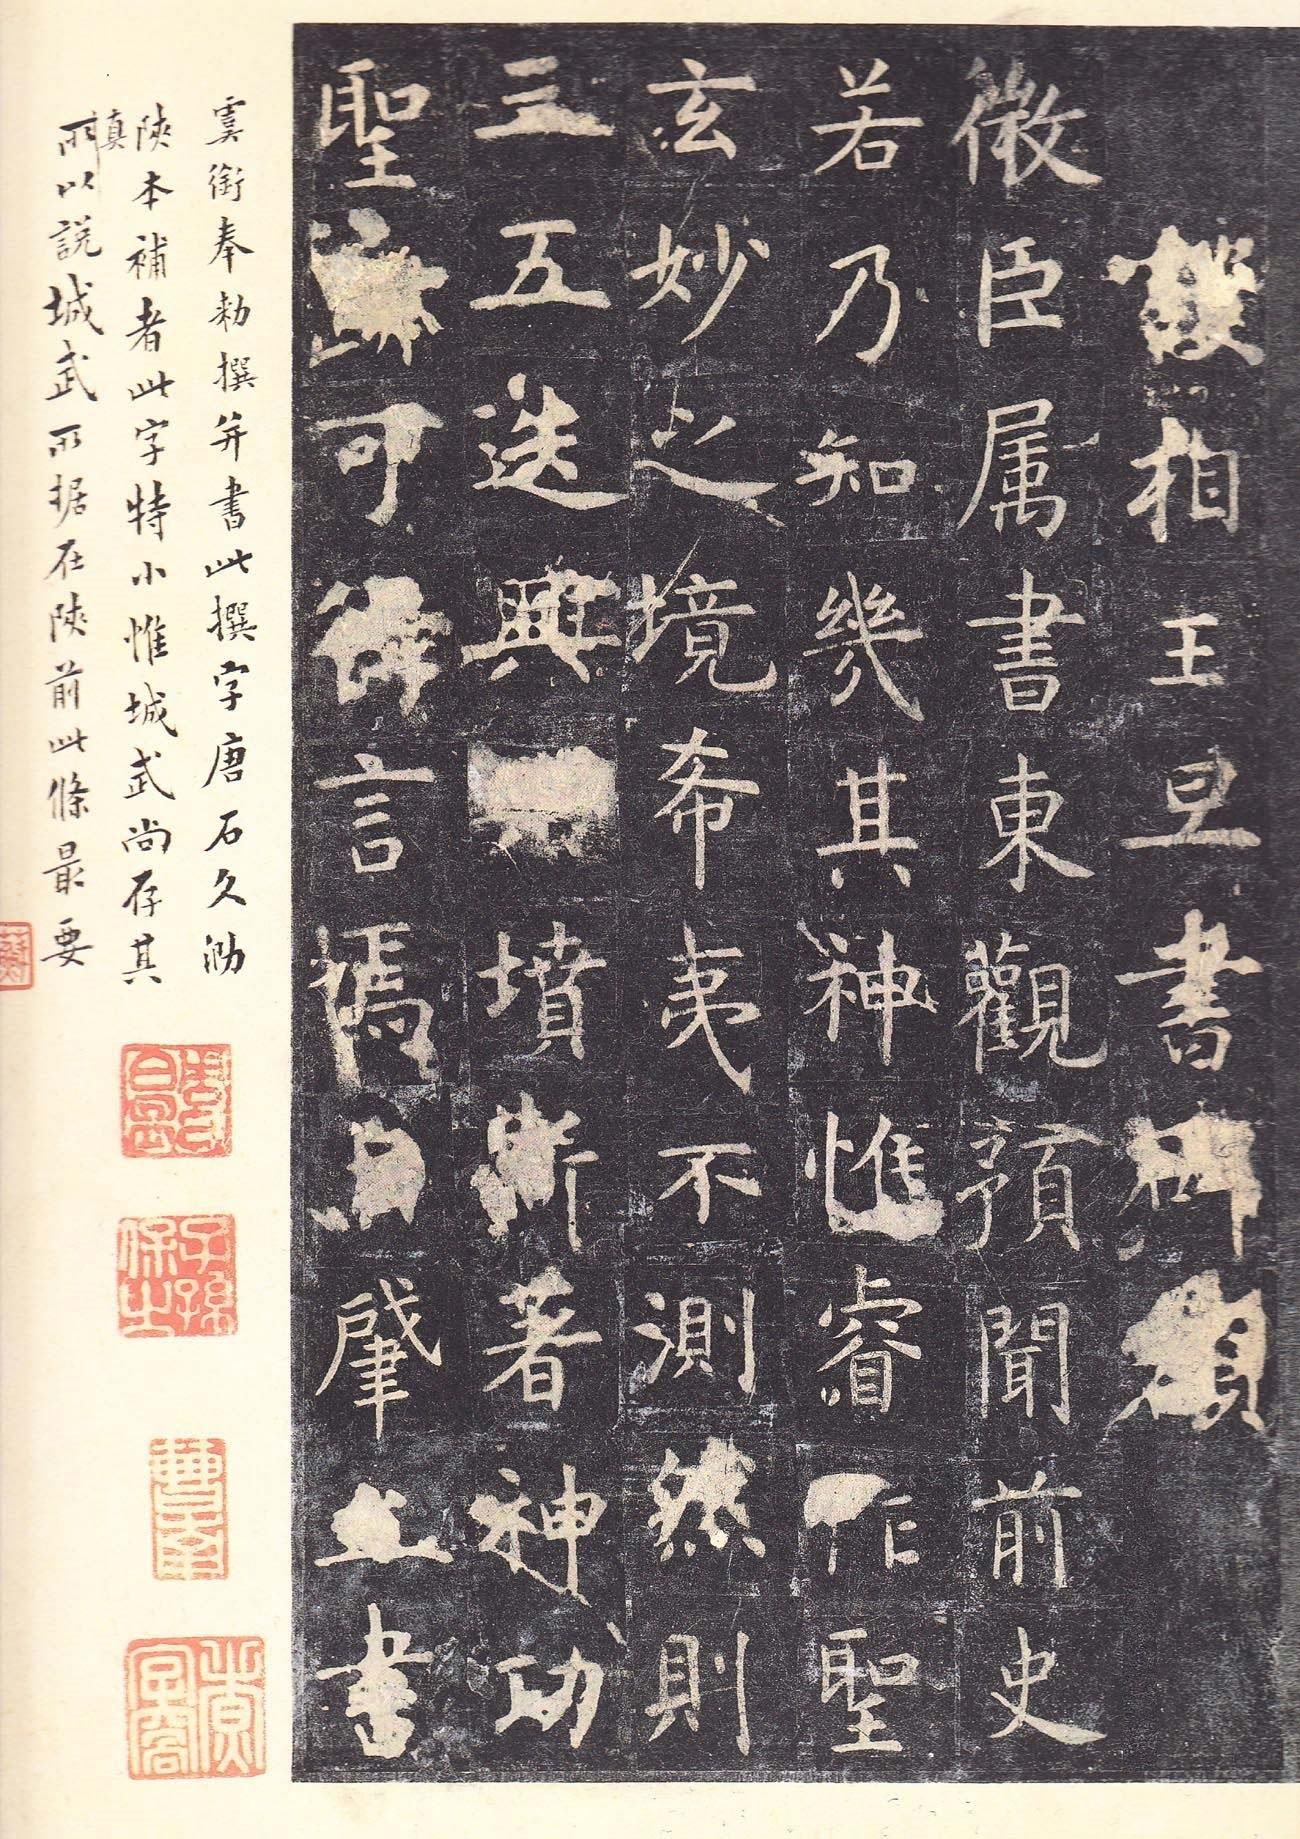 護相王旦書碑額
微臣属書東觀預聞前史
若乃知幾其神惟睿作聖
玄妙之境希夷不測然則
三五迭興墳斯著神功
聖迹可得言焉自肇立書
虞銜奉勑撰并書此撰字唐石久泐
陝本補者此字特小惟城武尚存其
真
所以説城武所据在陝前此條最要
子孫保之